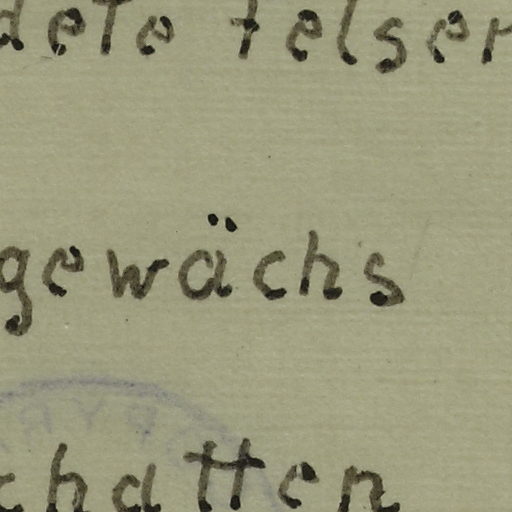 dete felser
gewächs
chatten